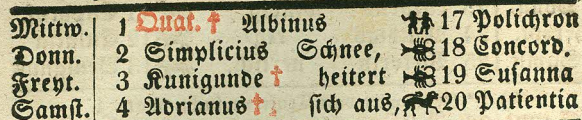 Mittw. 1 Quat. † Albinus 17 Polichron
Donn. 2 Simplicius Schnee, 18 Concord.
Freyt. 3 Kunigunde † heitert 19 Susanna
Samst. 4 Adrianus † sich aus, 20 Patientia